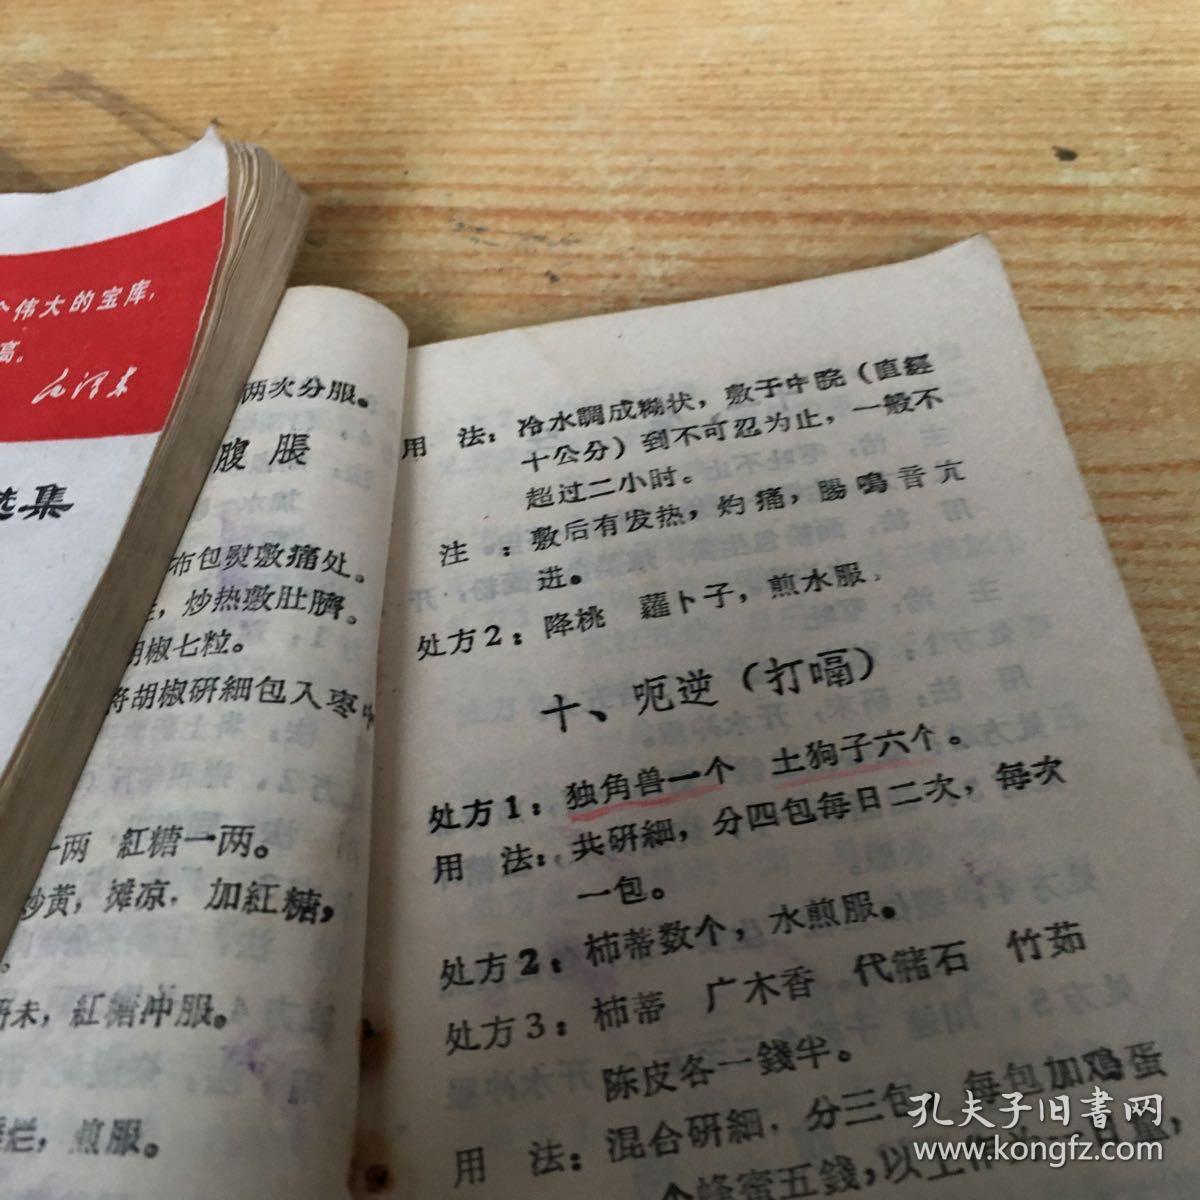 个伟大的宝库,
高。
毛泽东
选集
两次分服。
腹 脹
布包熨敷痛处。
炒热敷肚臍。
胡椒七粒。
将胡椒研細包入枣中
一两 紅糖一两。
炒黄, 摊凉. 加紅糖,
研未, 紅糖冲服。
烂, 煎服。
用 法: 冷水調成糊状, 敷于中脘 (直經
十公分) 到不可忍为止, 一般不
超过二小时。
注 : 敷后有发热, 灼痛, 腸鳴音亢
进。
处方2: 降桃 蘿卜子, 煎水服.
十、呃逆 (打嗝)
处方1: 独角兽一个 土狗子六个。
用 法: 共研細, 分四包每日二次, 每次
一包。
处方2: 柿蒂数个, 水煎服。
处方3: 柿蒂 广木香 代赭石 竹茹
陈皮各一錢半。
用 法: 混合研細. 分三包, 每包加鸡蛋
个蜂蜜五錢, 以上
孔夫子旧书网
www.kongfz.com